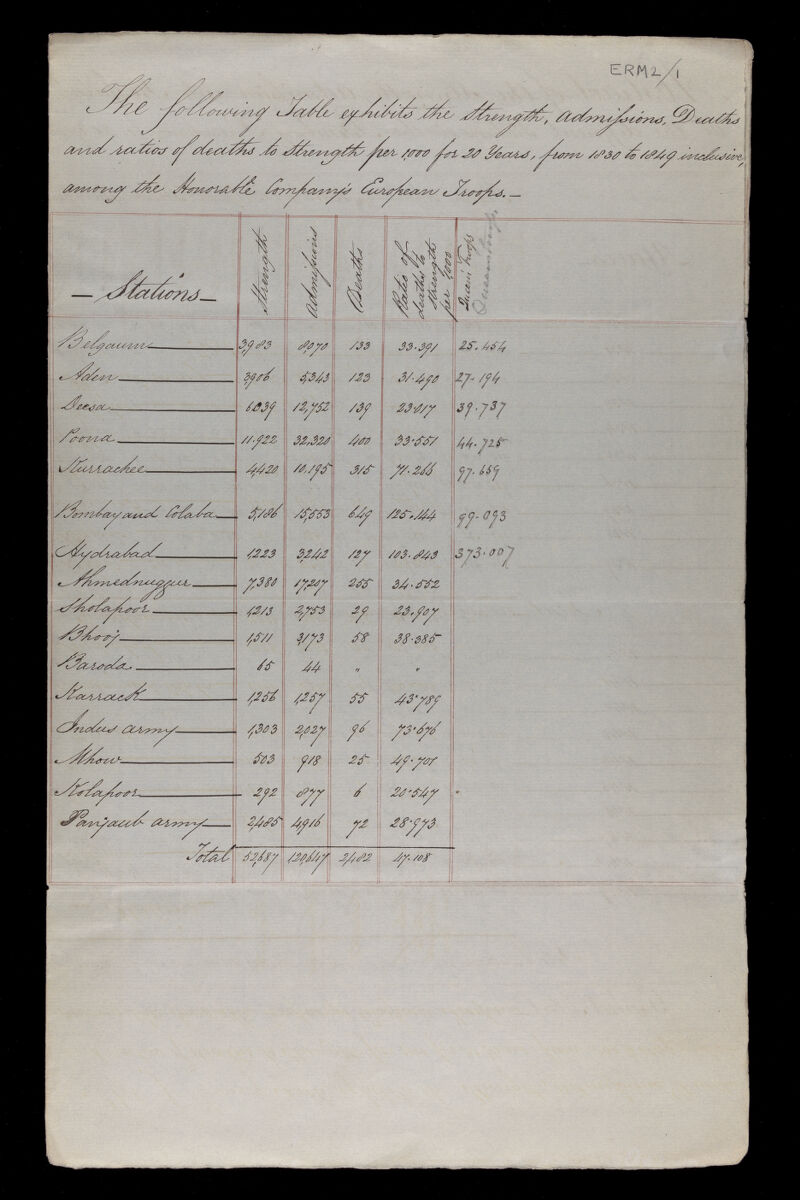 ERM2/1
The following Table exhibits the Strength, Admissions, Deaths
and ratios of deaths to Strength per 1,000 for 20 Years, from 1830 to 1849 inclusive,
among the Honorable Company's European Troops.—
— Stations — Strength Admissions Deaths Ratio of deaths to strength per 1,000 Queen's Troops Queens troops.
Belgaum 3,983 8,070 133 33.391 25.454
Aden 3,906 5,343 123 31.490 27.194
Deesa 6,039 12,752 139 23.017 39.737
Poona 11,922 32,320 400 33.551 44.725
Kurrachee 4,420 10,195 315 71.266 97.659
Bombay and Colaba 5,186 15,553 649 125.144 99.093
Hydrabad 1,223 3,242 127 103.843 373.007
Ahmednuggur 7,380 17,207 255 34.552
Sholapoor 1,213 2,753 29 23.907
Bhooj 1,511 3,173 58 38.385
Baroda 65 44 " "
Karrack 1,256 1,257 55 43.789
Indus army 1,303 2,027 96 73.676
Mhow 503 918 25 49.701
Kolapoor 292 877 6 20.547
Panjaub army 2,485 4,916 72 28.973
Total 52,687 120,647 2,482 47.108